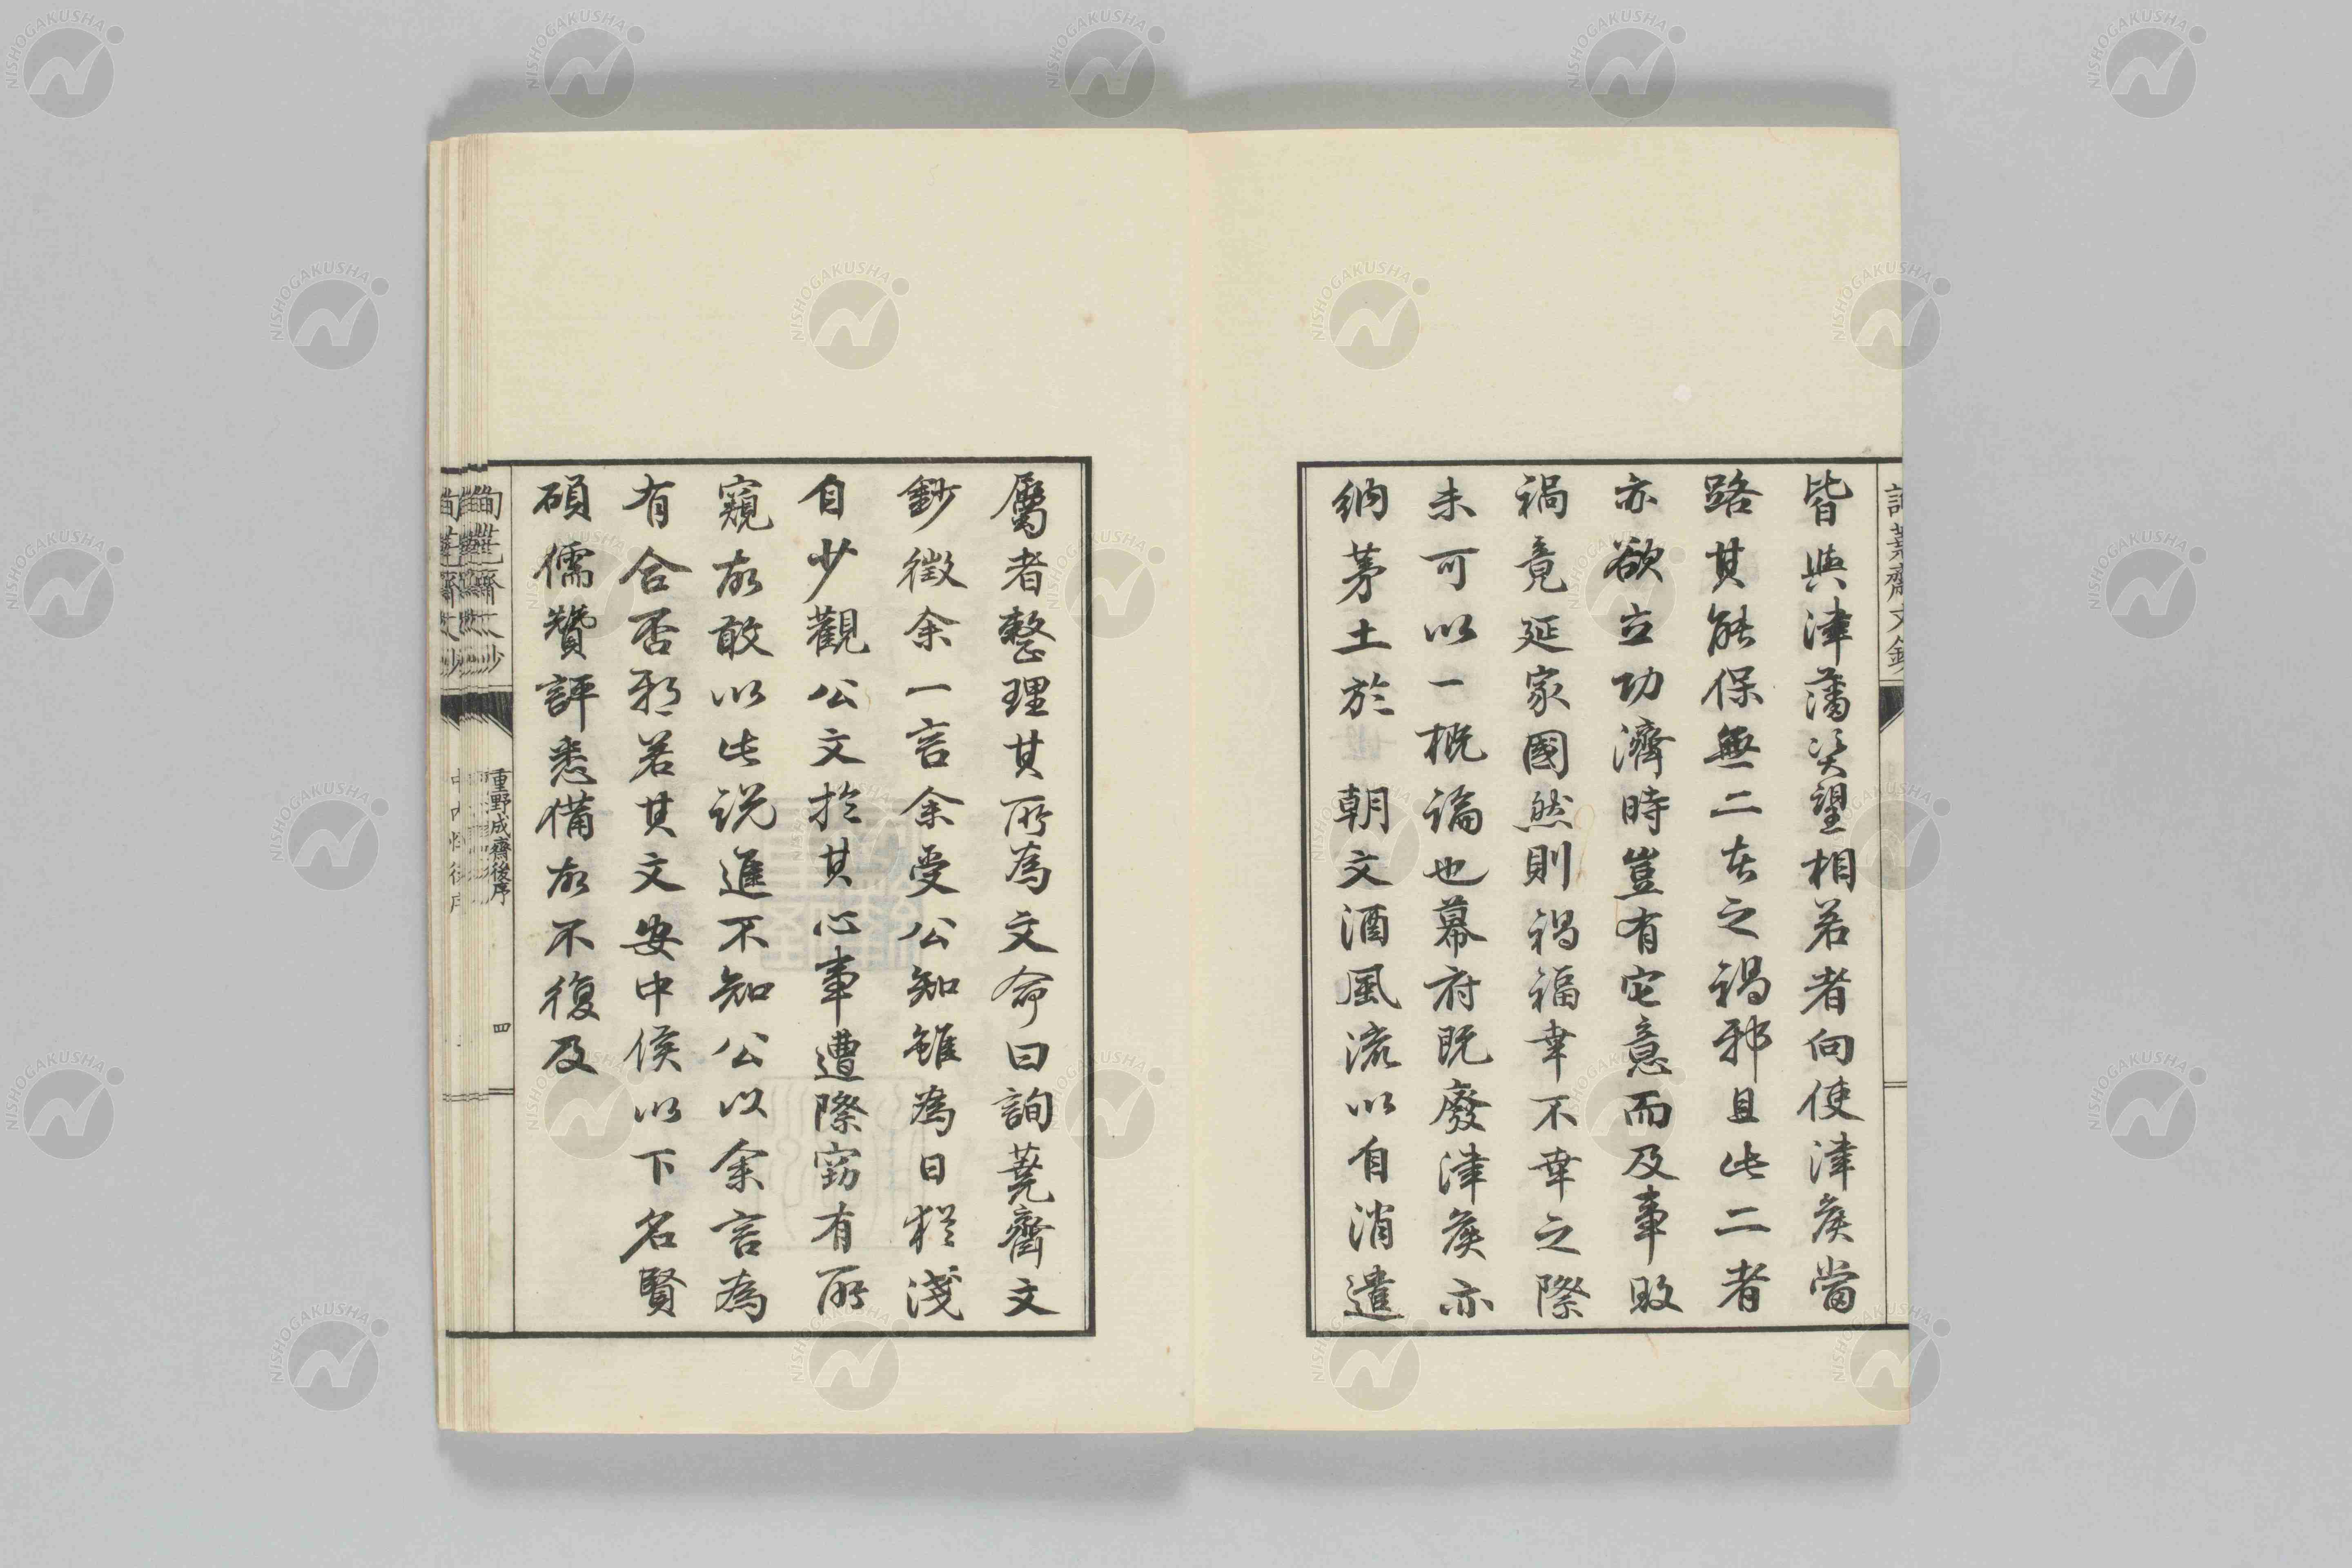 皆與津藩資望相若者向使津矦當
路其能保無二者之禍邪且此二者
亦欲立功濟時豈有它意而及事敗
禍竟延家國然則禍福幸不幸之際
未可以一概論也幕府既廢津矦亦
納茅土於 朝文酒風流以自消遣
屬者整理其所為文命曰詢蕘齋文
鈔徵余一言余受公知雖為日猶淺
自少觀公文於其心事遭際竊有所
窺故敢以此説進不知公以余言為
有合否邪若其文安中侯以下名賢
碩儒贊評悉備故不復及
詢蕘齋文鈔
重野成齋後序
四
NISHOGAKUSHA